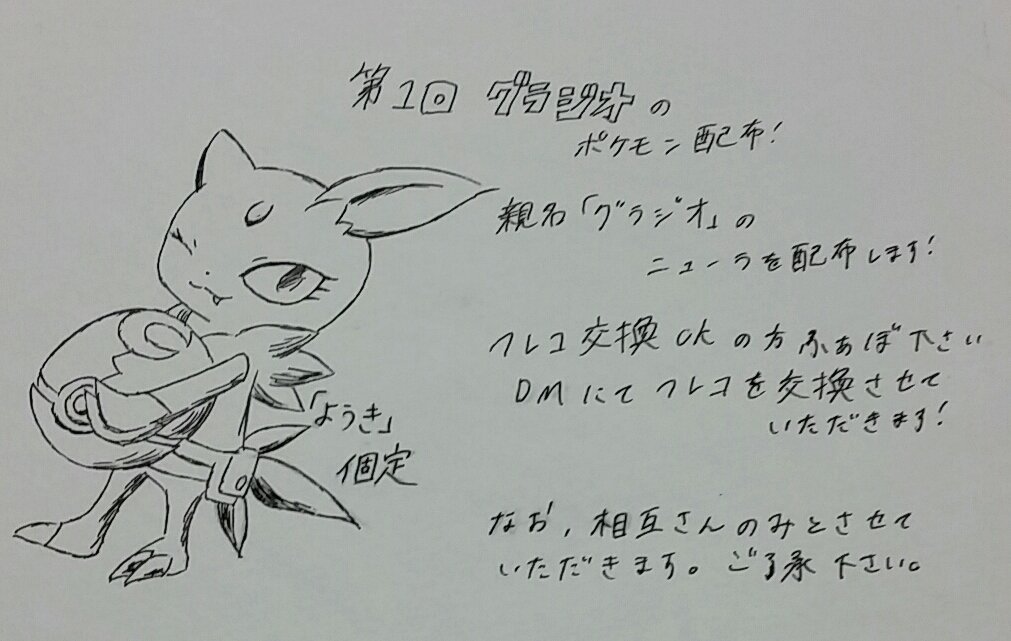 第1回 グラジオの
ポケモン配布!
親名「グラジオ」の
ニューラを配布します!
フレコ交換OKの方ふぁぼ下さい
DMにてフレコを交換させて
いただきます!
「ようき」
個定
なお,相互さんのみとさせて
いただきます。ご了承下さい。